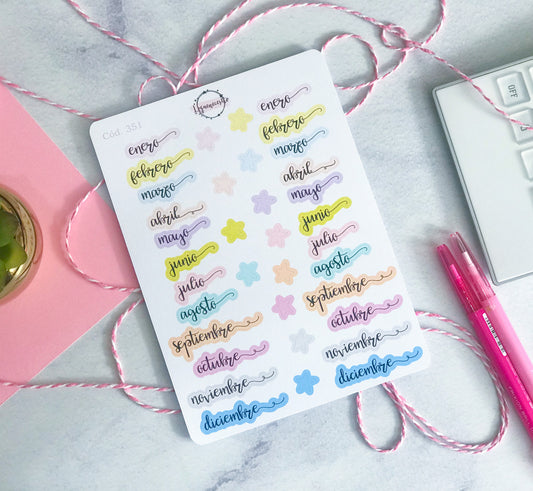 Cód. 351
enero
febrero
marzo
abril
mayo
junio
julio
agosto
septiembre
octubre
noviembre
diciembre
enero
febrero
marzo
abril
mayo
junio
julio
agosto
septiembre
octubre
noviembre
diciembre
OFF